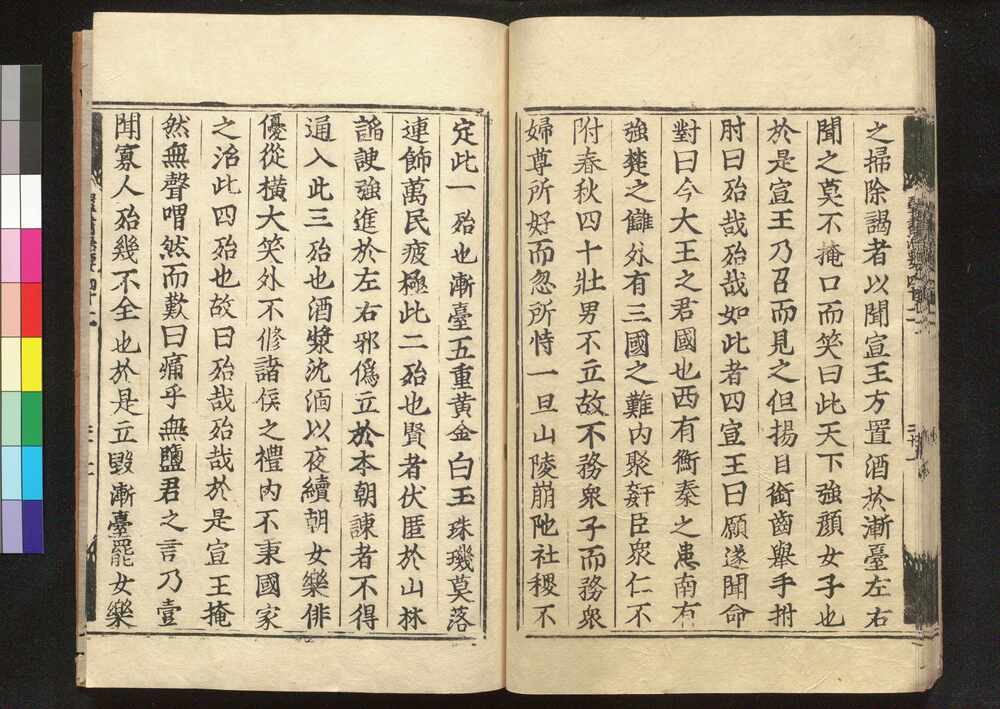 之掃除謁者以聞宣王方置酒於漸臺左右
聞之莫不掩口而笑曰此天下強顔女子也
於是宣王乃召而見之但揚目銜齒舉手拊
肘曰殆哉殆哉如此者四宣王曰願遂聞命
對曰今大王之君國也西有衡秦之患南有
強楚之讎外有三國之難内聚姧臣衆仁不
附春秋四十壯男不立故不務衆子而務衆
婦尊所好而忽所恃一旦山陵崩阤社稷不
定此一殆也漸臺五重黄金白玉珠璣莫落
連飾萬民疲極此二殆也賢者伏匿於山林
謟諛強進於左右邪僞立於本朝諫者不得
通入此三殆也酒漿沈湎以夜續朝女樂俳
優從横大笑外不脩諸侯之禮内不秉國家
之治此四殆也故曰殆哉殆哉於是宣王掩
然無聲喟然而歎曰痛乎無鹽君之言乃壹
聞寡人殆幾不全也於是立毀漸臺罷女樂